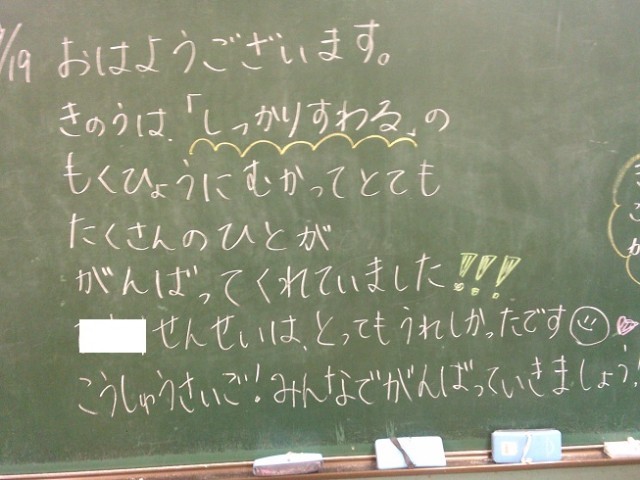 /19 おはようございます。
きのうは、「しっかりすわる」の
もくひょうにむかってとても
たくさんのひとが
がんばってくれていました!!!
せんせいは、とってもうれしかったです
こうしゅうさいご!みんなでがんばっていきましょう!